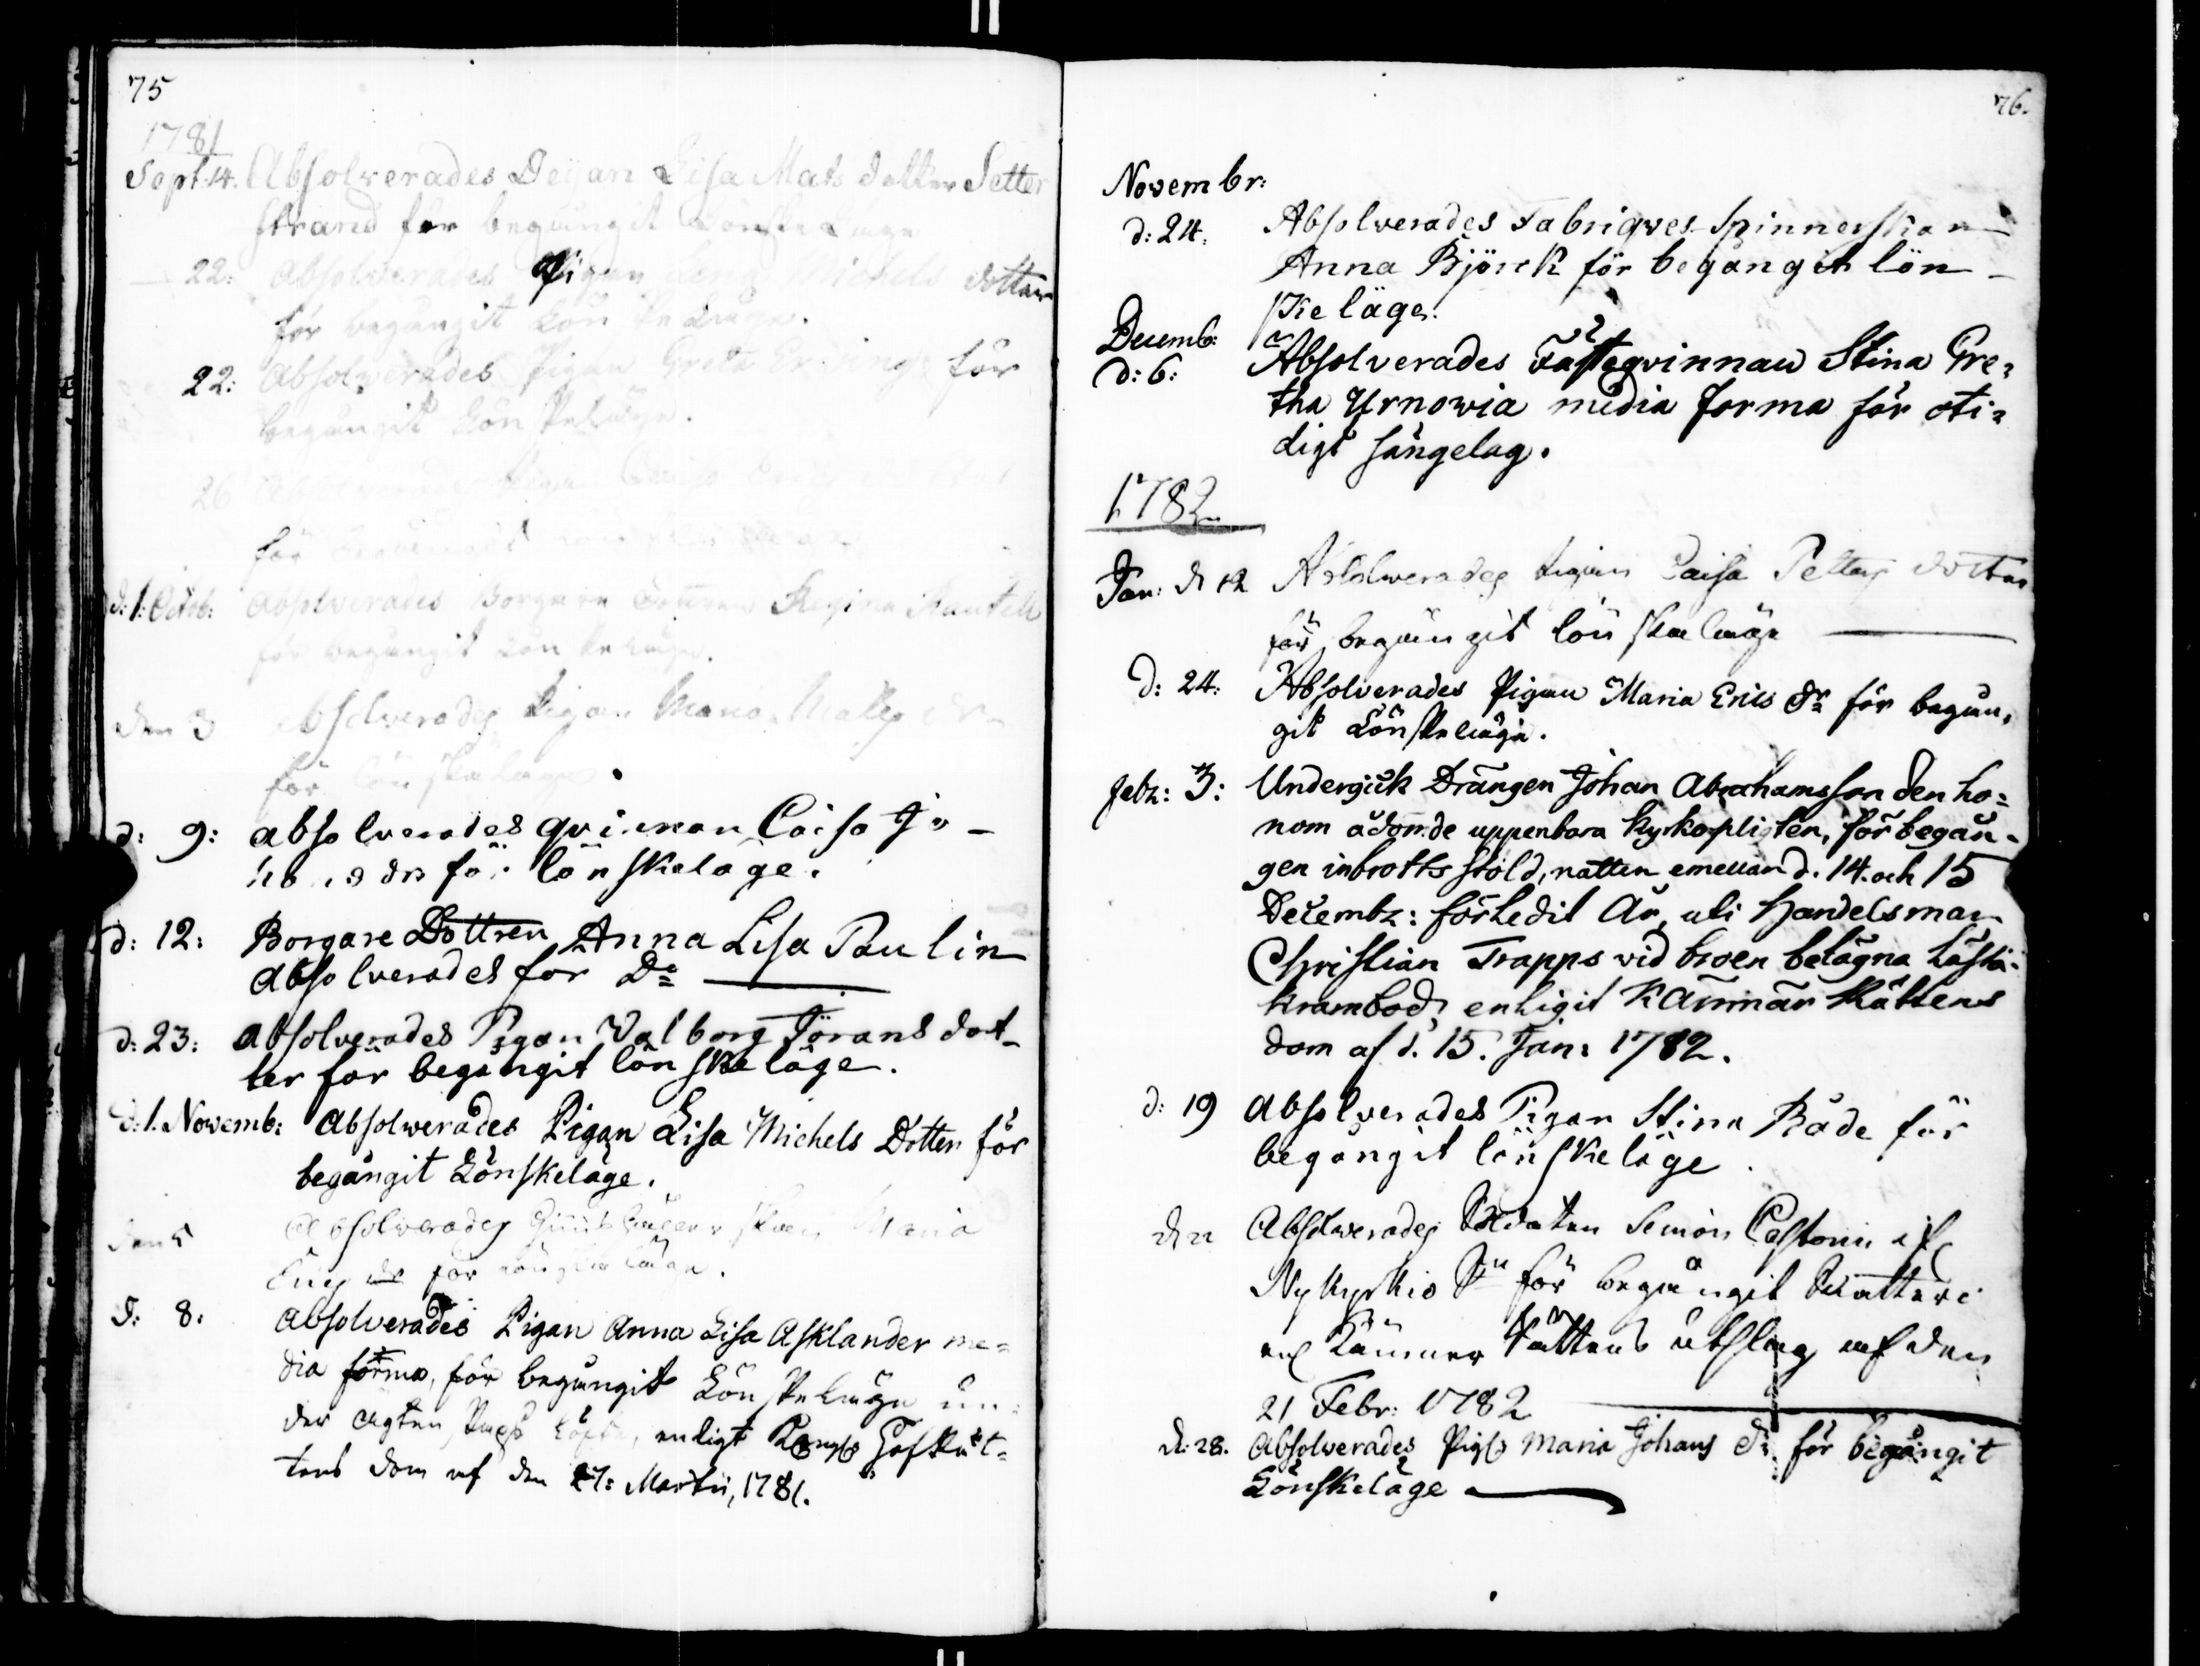 75
1781
Sept. 14. Absolverades Deijan Lisa Mats dotter Setter
strand för begångit Lönskeläge
22: Absolverades Pigan Lena Michels dotter
för begångit Lönskeläge.
22: Absolverades Pigan Greta för
begångit Lönskeläge.
26 Absolverades Pigan
för
d: 1: Octob: Absolverades Borgare Dottren Regina
för begångit Lönskeläge.
den 3 Absolverades Pigan Maria Matts dr
för lönskeläge
d: 9: absolverades qvinnan Caisa Jo-
hans dr för lönskeläge.
d: 12: Borgare Dottren Anna Lisa Paulin
absolverades för Do
d: 23: absolverades Pigan Valborg Jörans dot-
ter för begångit lönskeläge.
d: 1. Novemb: Absolverades Pigan Lisa Michels Dotter för
begångit Lönskeläge.
den 5 Absolverades Maria
dr för lönskeläge.
d: 8. Absolverades Pigan Anna Lisa Asklander me=
dia forma, för begångit Lönskeläge un=
der ägtenskaps löfte, enligt Kongl. Hofrät=
tens dom af den 27: Martii, 1781.
76.
Novembr:
d: 24. Absolverades Fabriqves Spinnerskan
Anna Björck för begångit lön-
skeläge.
Decemb:
d: 6: Absolverades Fästeqvinnan Stina Gre=
tha Urnowia media forma för oti=
digt sängelag.
1782
Jan: d 12 Absolverades Pigan Caisa Petters dotter
för begångit lönskaläge
d: 24: Absolverades Pigan Maria Erics dr för begån=
git Lönskeläge.
febr: 3: Undergick Drängen Johan Abrahamsson den ho=
nom ådömde uppenbara kyrkoplikten, för begån=
gen inbrotts stöld, natten emellan d. 14. och 15
Decembr: förledit År, uti Handelsman
Christian Trapps vid broen belägna
krambod, enligit Kämnärs Rättens
dom af d. 15. Jan: 1782.
d: 19 absolverades Pigan Stina Råde för
begångit lönskeläge.
d 22 Absolverades Soldaten Semon Castorin if
Nykyrkio Sn för begångit
enl Kämner Rättens utslag af den
21 Febr: 1782
d: 28. Absolverades Pig. Maria Johans dr för begångit
Lönskeläge